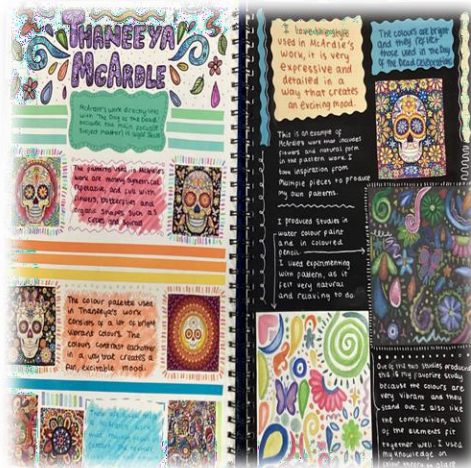 THANEEYA
MCARDLE
McArdle's work directly links
with The Day of the Dead
because the main
subject matter is sugar skulls
The patterns used in McArdle's
work are mostly symmetrical,
repetative, and full with
flowers, butterflies and
organic shapes such as
circles and spirals
The colour palette used
in Thaneeya's work
consists of a lot of bright
vibrant colours. The
colours contrast eachother
in a way that creates a
fun, excitable mood.
I love the style
used in McArdle's
work, it is very
expressive and
detailed in a
way that creates
an exciting mood.
The colours are bright
and they reflect
those used in The Day
of the Dead celebrations.
This is an example of
McArdle's work that includes
flowers and natural form
in the pattern work. I
took inspiration from
multiple pieces to produce
my own patterns.
I produced studies in
water colour paint
and in coloured
pencil.
I liked experimenting
with pattern, as it
felt very natural
and relaxing to do.
Out of the two studies produced
this is my favorite study
because the colours are
very vibrant and they
stand out. I also like
the composition, all
of the elements fit
together well. I used
my knowledge on